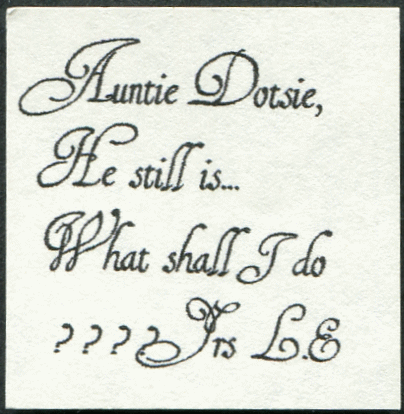 Auntie Dotsie,
He still is...
What shall I do
? ? ? ? Yrs L.E